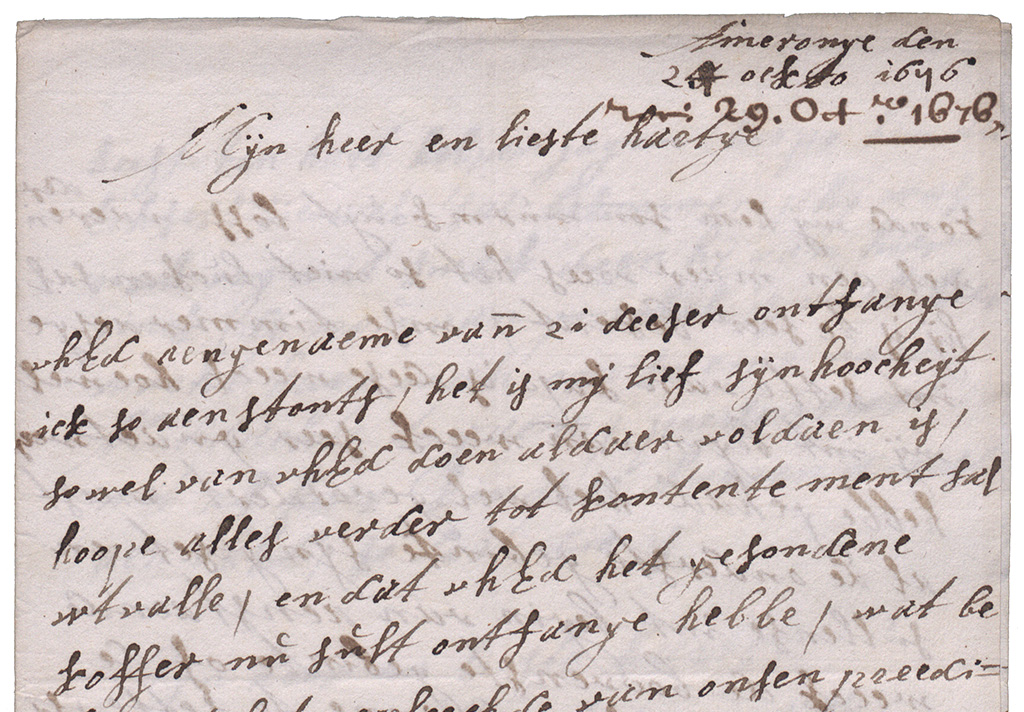 Ameronge den
24 ockto 1676
29. Oct.re 1676,
Mijn heer en lieste hartge
uhEd aengenaeme van 21 deeser ontfange
ick so aenstonts, het is mij lief sijn hoocheijt
so wel van uhEd doen aldaer voldaen is,
hoope alles verder tot kontentement sal
utvalle, en dat uhEd het gesondene
koffer nu sult ontfange hebbe, wat be
van onsen preedi=